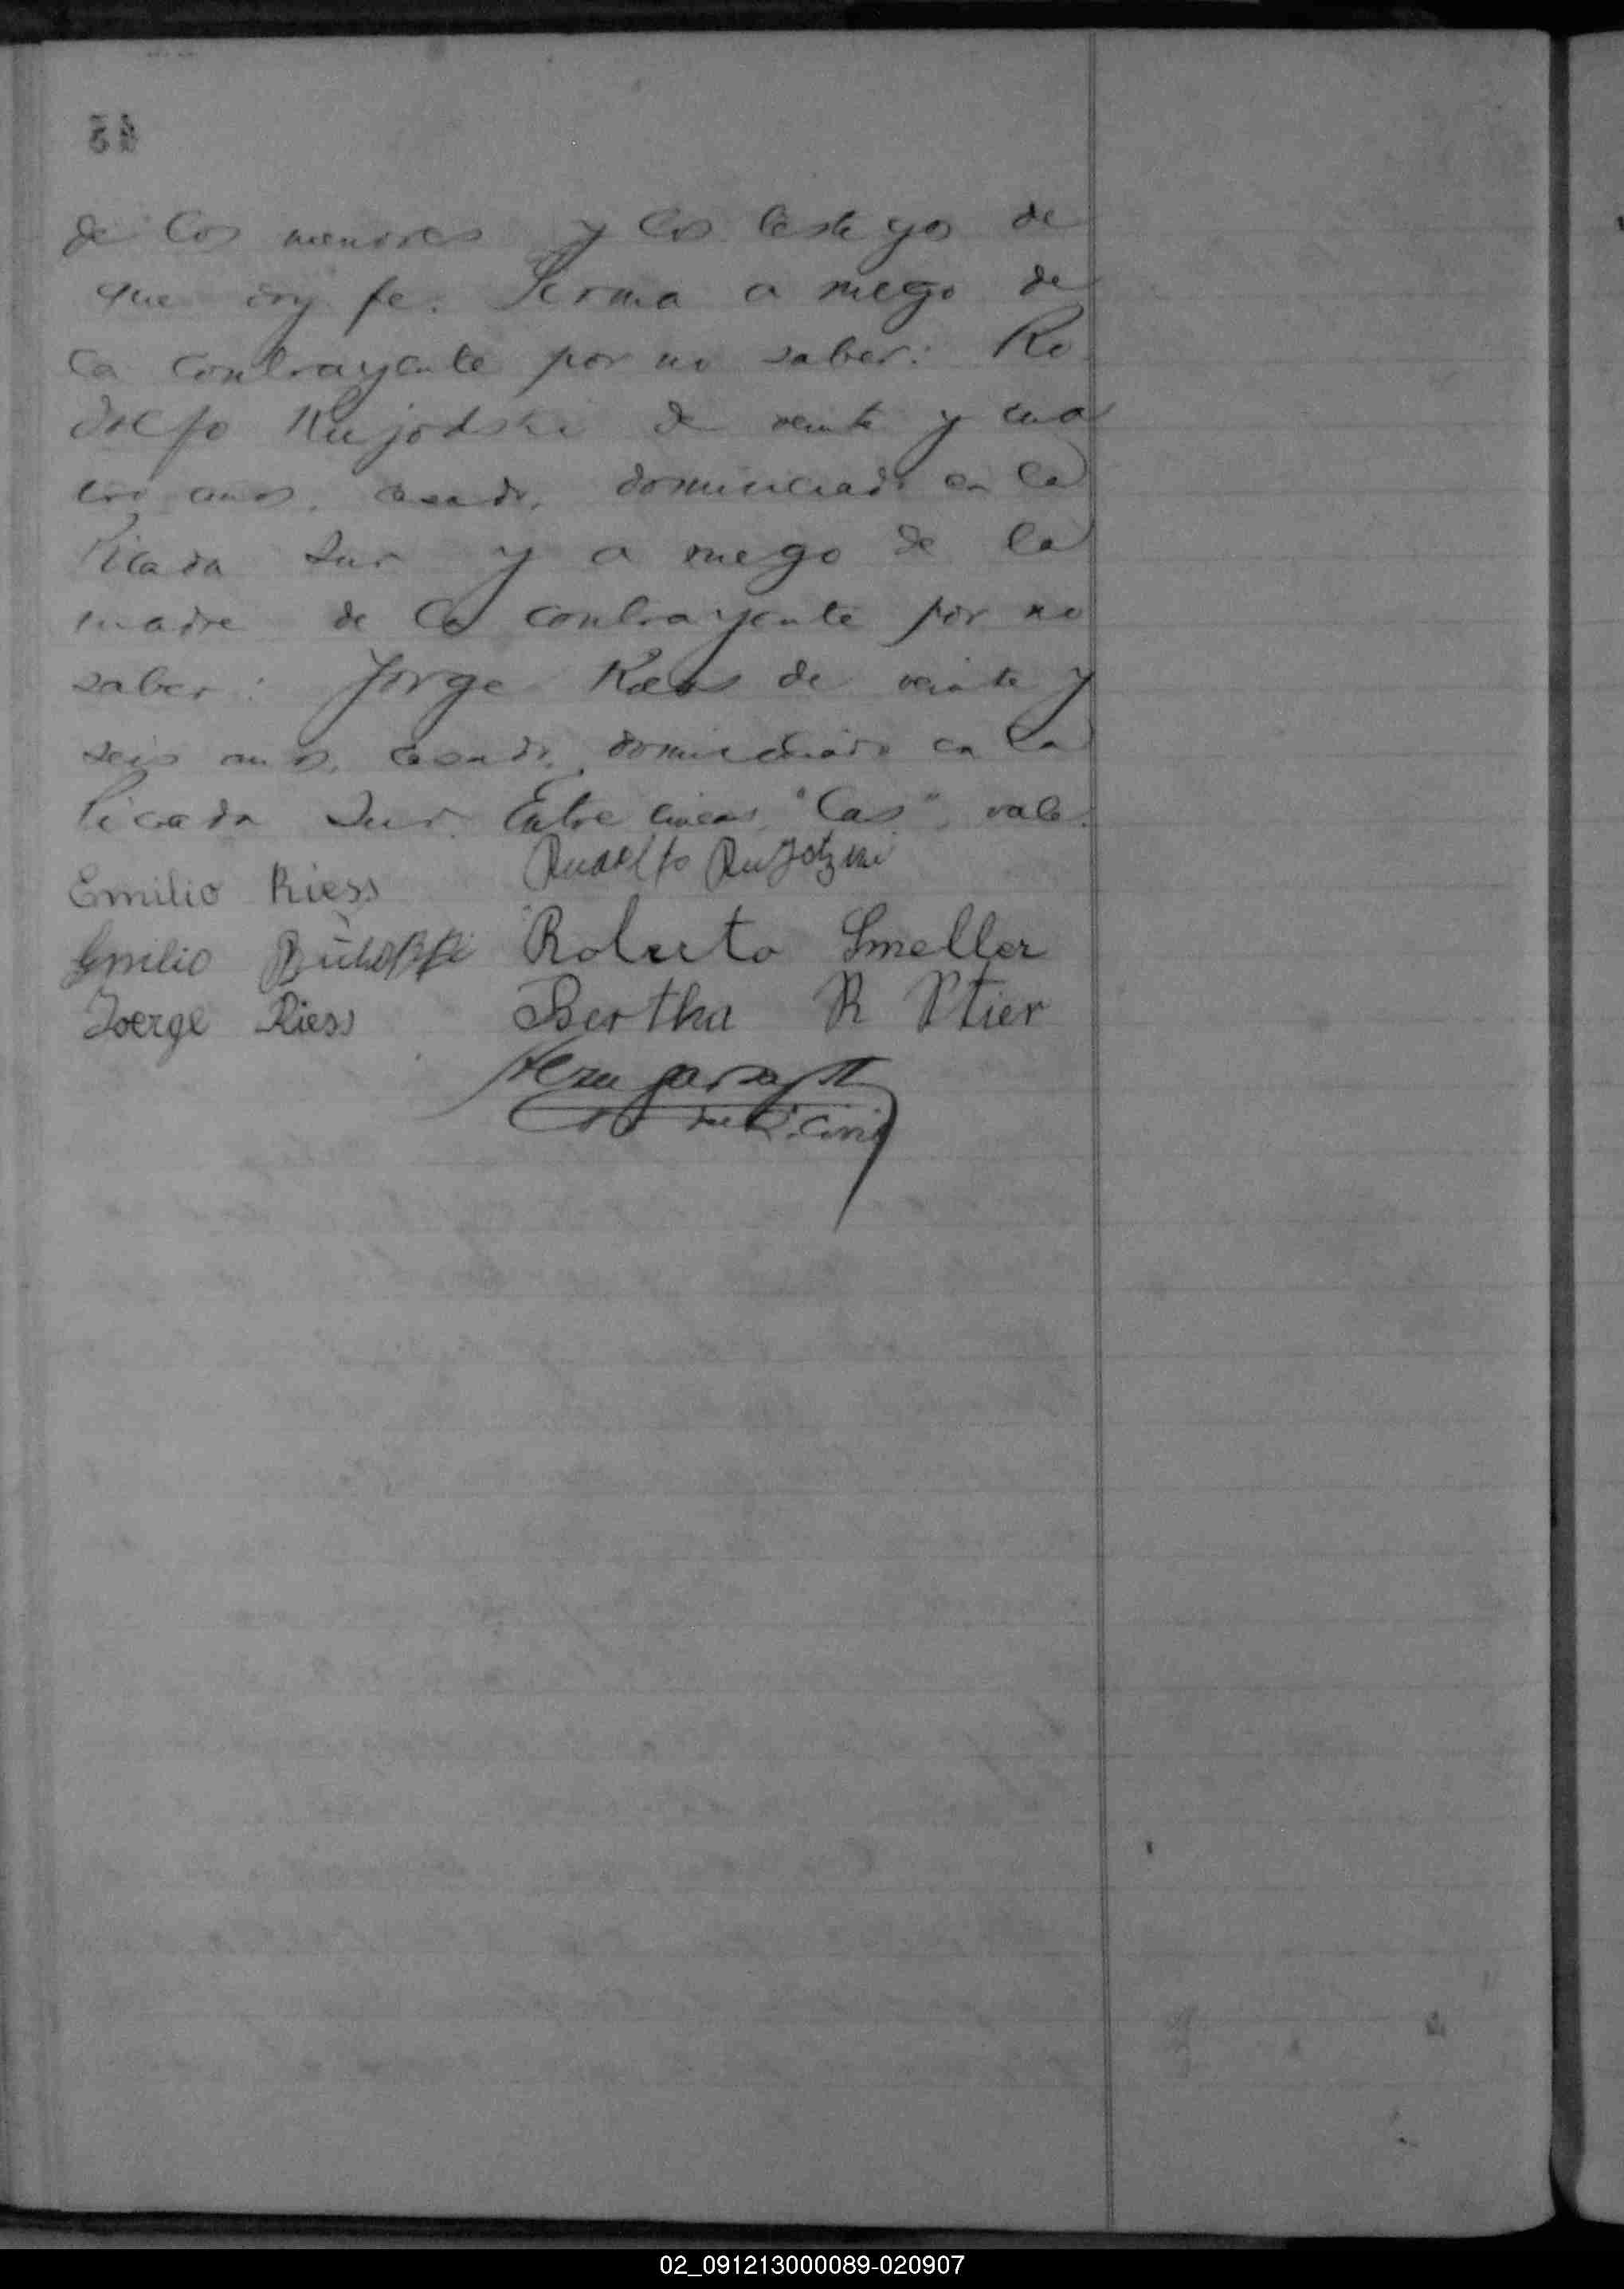 de los menores y los testigos de
que doy fe. Firma a ruego de
la contrayente por no saber: Ro
dolfo Rujodski de veinte y cua
tro años, casado, domiciliado en la
Picada Sur y a ruego de la
madre de la contrayente por no
saber: Jorge Riess de veinte y
seis años, casado, domiciliado en la
Picada Sur. Entre lineas "las", vale.
Emilio Riess Rudolfo
Emilio Roberto Smeller
Joerge Riess Bertha R Stier
02_091213000089-020907